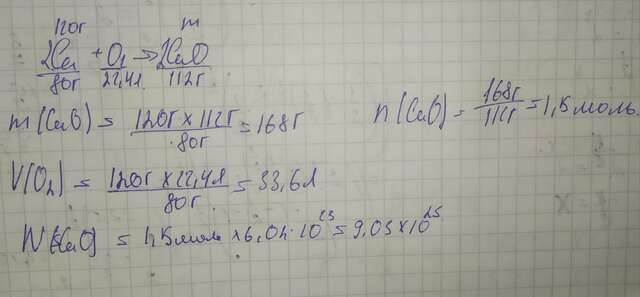 120г m
2Ca + O₂ → 2CaO
80г 22,4л 112г
m(CaO) = 120г × 112г / 80г = 168г
n(CaO) = 168г / 112г = 1,5 моль.
V(O₂) = 120г × 22,4л / 80г = 33,6л
N(CaO) = 1,5 моль × 6,02·10²³ = 9,03×10²³